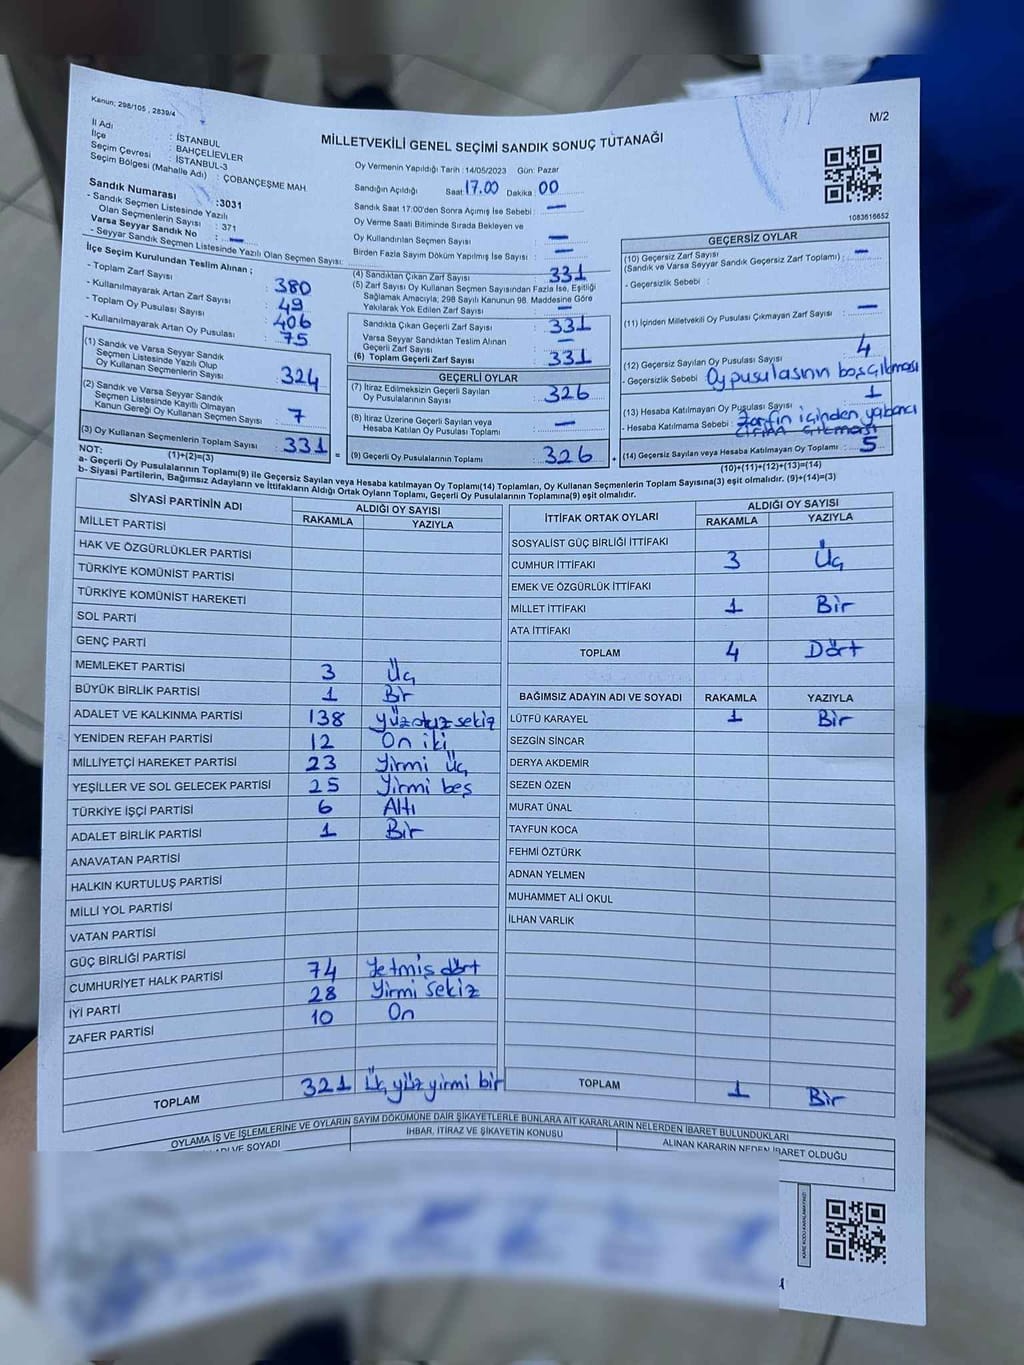 Kanun; 298/105 , 2839/4
M/2
MİLLETVEKİLİ GENEL SEÇİMİ SANDIK SONUÇ TUTANAĞI
İl Adı : İSTANBUL
İlçe : BAHÇELİEVLER
Seçim Çevresi : İSTANBUL-3
Seçim Bölgesi (Mahalle Adı) : ÇOBANÇEŞME MAH
Sandık Numarası :3031
- Sandık Seçmen Listesinde Yazılı
Olan Seçmenlerin Sayısı : 371
Varsa Seyyar Sandık No : —
- Seyyar Sandık Seçmen Listesinde Yazılı Olan Seçmen Sayısı:
Oy Vermenin Yapıldığı Tarih : 14/05/2023 Gün: Pazar
Sandığın Açıldığı Saat: 17.00 Dakika : 00
Sandık Saat 17.00'den Sonra Açımış İse Sebebi : —
Oy Verme Saati Bitiminde Sırada Bekleyen ve
Oy Kullandırılan Seçmen Sayısı : —
Birden Fazla Sayım Döküm Yapılmış İse Sayısı : —
İlçe Seçim Kurulundan Teslim Alınan ;
- Toplam Zarf Sayısı : 380
- Kullanılmayarak Artan Zarf Sayısı : 49
- Toplam Oy Pusulası Sayısı : 406
- Kullanılmayarak Artan Oy Pusulası : 75
(1) Sandık ve Varsa Seyyar Sandık
Seçmen Listesinde Yazılı Olup
Oy Kullanan Seçmenlerin Sayısı : 324
(2) Sandık ve Varsa Seyyar Sandık
Seçmen Listesinde Kayıtlı Olmayan
Kanun Gereği Oy Kullanan Seçmen Sayısı : 7
(3) Oy Kullanan Seçmenlerin Toplam Sayısı : 331 =
(1)+(2)=(3)
(4) Sandıktan Çıkan Zarf Sayısı : 331
(5) Zarf Sayısı Oy Kullanan Seçmen Sayısından Fazla İse, Eşitliği
Sağlamak Amacıyla, 298 Sayılı Kanunun 98. Maddesine Göre
Yakılarak Yok Edilen Zarf Sayısı : —
Sandıkta Çıkan Geçerli Zarf Sayısı : 331
Varsa Seyyar Sandıktan Teslim Alınan
Geçerli Zarf Sayısı : —
(6) Toplam Geçerli Zarf Sayısı : 331
GEÇERLİ OYLAR
(7) İtiraz Edilmeksizin Geçerli Sayılan
Oy Pusulalarının Sayısı : 326
(8) İtiraz Üzerine Geçerli Sayılan veya
Hesaba Katılan Oy Pusulası Toplamı : —
(9) Geçerli Oy Pusulalarının Toplamı : 326 +
1083616652
GEÇERSİZ OYLAR
(10) Geçersiz Zarf Sayısı : —
(Sandık ve Varsa Seyyar Sandık Geçersiz Zarf Toplamı)
- Geçersizlik Sebebi :
(11) İçinden Milletvekili Oy Pusulası Çıkmayan Zarf Sayısı : —
(12) Geçersiz Sayılan Oy Pusulası Sayısı : 4
- Geçersizlik Sebebi : Oy pusulasının boş çıkması
(13) Hesaba Katılmayan Oy Pusulası Sayısı : 1
- Hesaba Katılmama Sebebi : Zarfın içinden yabancı
cisim çıkması
(14) Geçersiz Sayılan veya Hesaba Katılmayan Oy Toplamı : 5
(10)+(11)+(12)+(13)=(14)
NOT:
a- Geçerli Oy Pusulalarının Toplamı(9) ile Geçersiz Sayılan veya Hesaba Katılmayan Oy Toplamı(14) Toplamları, Oy Kullanan Seçmenlerin Toplam Sayısına(3) eşit olmalıdır. (9)+(14)=(3)
b- Siyasi Partilerin, Bağımsız Adayların ve İttifakların Aldığı Ortak Oyların Toplamı, Geçerli Oy Pusulalarının Toplamına(9) eşit olmalıdır.
SİYASİ PARTİNİN ADI ALDIĞI OY SAYISI
RAKAMLA YAZIYLA
MİLLET PARTİSİ
HAK VE ÖZGÜRLÜKLER PARTİSİ
TÜRKİYE KOMÜNİST PARTİSİ
TÜRKİYE KOMÜNİST HAREKETİ
SOL PARTİ
GENÇ PARTİ
MEMLEKET PARTİSİ 3 Üç
BÜYÜK BİRLİK PARTİSİ 1 Bir
ADALET VE KALKINMA PARTİSİ 138 yüzotuz sekiz
YENİDEN REFAH PARTİSİ 12 On iki
MİLLİYETÇİ HAREKET PARTİSİ 23 Yirmi Üç
YEŞİLLER VE SOL GELECEK PARTİSİ 25 Yirmi beş
TÜRKİYE İŞÇİ PARTİSİ 6 Altı
ADALET BİRLİK PARTİSİ 1 Bir
ANAVATAN PARTİSİ
HALKIN KURTULUŞ PARTİSİ
MİLLİ YOL PARTİSİ
VATAN PARTİSİ
GÜÇ BİRLİĞİ PARTİSİ
CUMHURİYET HALK PARTİSİ 74 Yetmiş dört
İYİ PARTİ 28 Yirmi sekiz
ZAFER PARTİSİ 10 On
TOPLAM 321 Üç yüz yirmi bir
İTTİFAK ORTAK OYLARI ALDIĞI OY SAYISI
RAKAMLA YAZIYLA
SOSYALİST GÜÇ BİRLİĞİ İTTİFAKI
CUMHUR İTTİFAKI 3 Üç
EMEK VE ÖZGÜRLÜK İTTİFAKI
MİLLET İTTİFAKI 1 Bir
ATA İTTİFAKI
TOPLAM 4 Dört
BAĞIMSIZ ADAYIN ADI VE SOYADI RAKAMLA YAZIYLA
LÜTFÜ KARAYEL 1 Bir
SEZGİN SİNCAR
DERYA AKDEMİR
SEZEN ÖZEN
MURAT ÜNAL
TAYFUN KOCA
FEHMİ ÖZTÜRK
ADNAN YELMEN
MUHAMMET ALİ OKUL
İLHAN VARLIK
TOPLAM 1 Bir
OYLAMA İŞ VE İŞLEMLERİNE VE OYLARIN SAYIM DÖKÜMÜNE DAİR ŞİKAYETLERLE BUNLARA AİT KARARLARIN NELERDEN İBARET BULUNDUKLARI
ADI VE SOYADI İHBAR, İTİRAZ VE ŞİKAYETİN KONUSU ALINAN KARARIN NEDEN İBARET OLDUĞU
KARE KODU KARALAMAYINIZ!